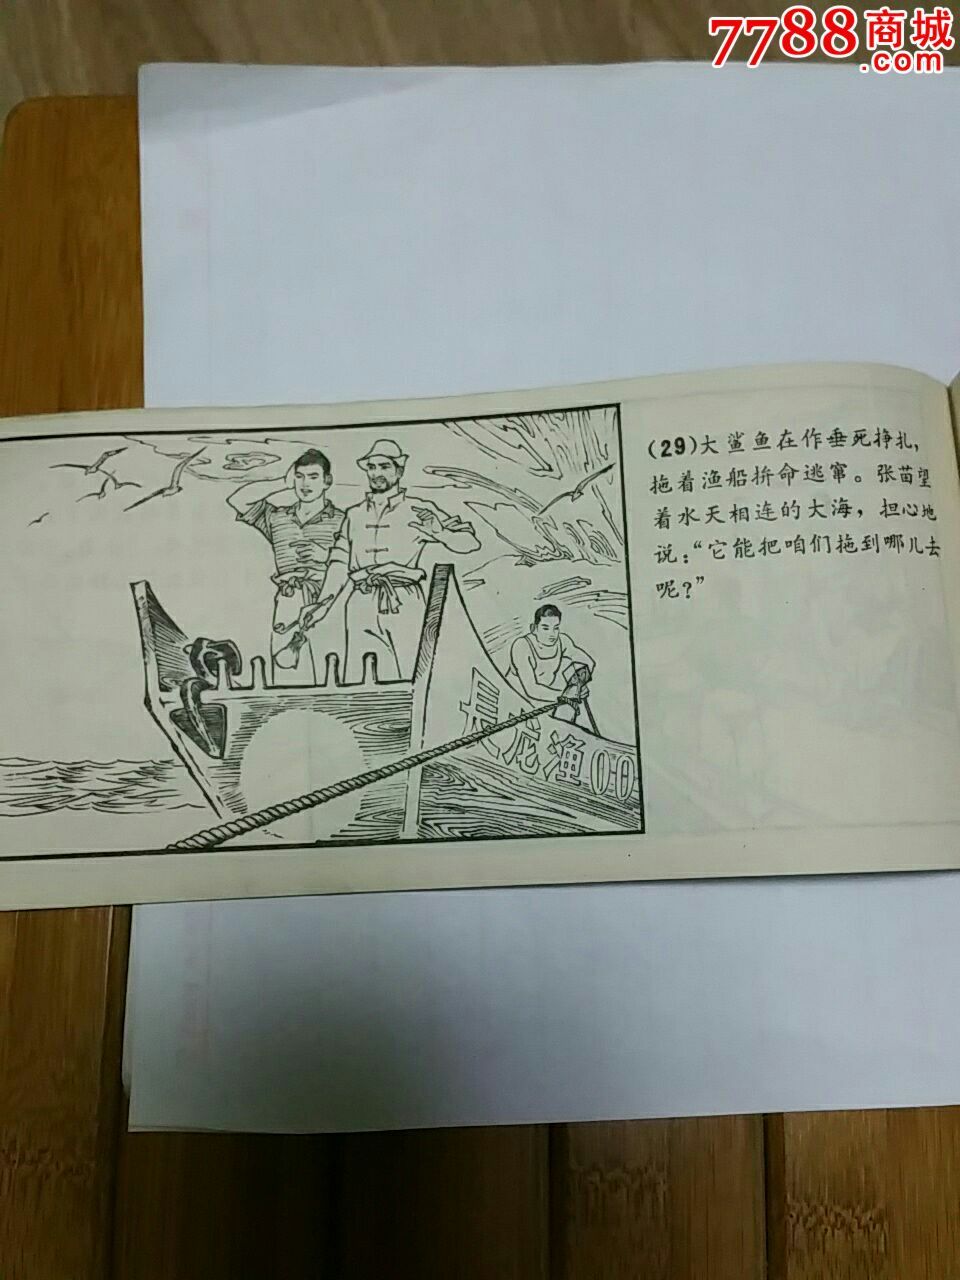 7788商城
.com
(29)大鲨鱼在作垂死挣扎，
拖着渔船拚命逃窜。张苗望
着水天相连的大海，担心地
说：“它能把咱们拖到哪儿去
呢？”
长龙渔00